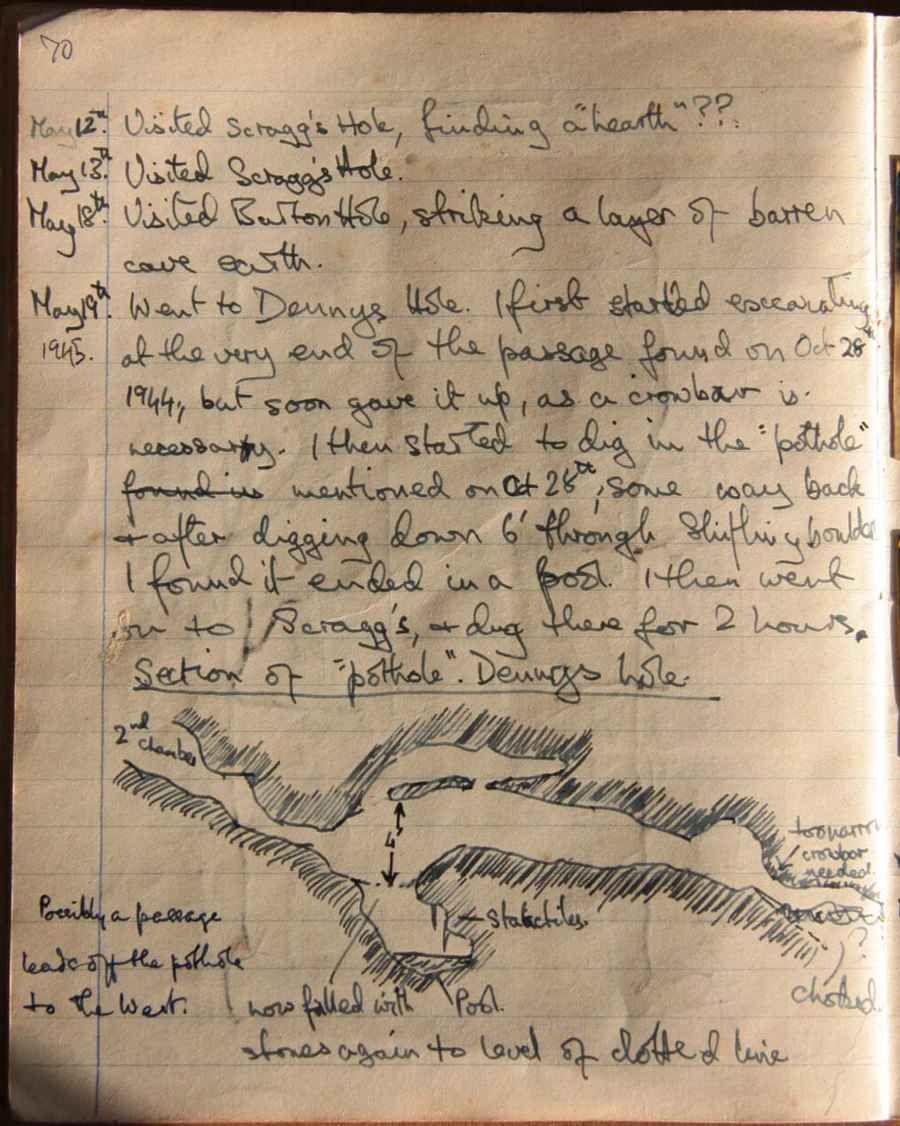 70
May 12th. Visited Scragg's Hole, finding a "hearth"??
May 13th. Visited Scragg's Hole.
May 18th. Visited Burton Hole, striking a layer of barren
cave earth.
May 19th. Went to Dennys Hole. I first started excavating
1945. at the very end of the passage found on Oct 28th
1944, but soon gave it up, as a crowbar is
necessary. I then started to dig in the "pothole"
found in mentioned on Oct 28th, some way back
+ after digging down 6' through shifting boulder
I found it ended in a pool. I then went
on to Scragg's, + dug there for 2 hours.
Section of "pothole". Dennys hole.
2nd
chamber
too narrow
crowbar
needed.
4'
Possibly a passage
leads off the pothole
to the West.
Stalactites.
?
choked.
now filled with
Pool.
stones again to level of dotted line